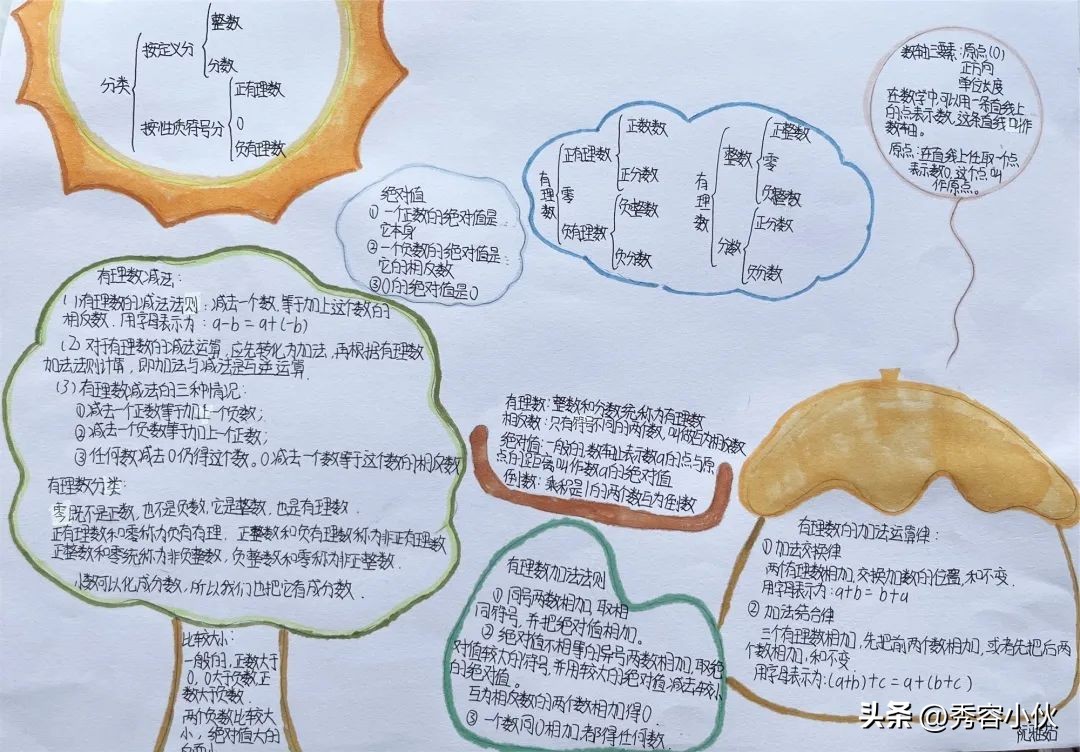 分类
按定义分
整数
分数
按性质符号分
正有理数
0
负有理数
绝对值
① 一个正数的绝对值是
它本身
② 一个负数的绝对值是
它的相反数
③ 0的绝对值是0
有理数
正有理数
正整数
正分数
零
负有理数
负整数
负分数
有理数
整数
正整数
零
负整数
分数
正分数
负分数
数轴三要素:原点(0)
正方向
单位长度
在数学中,可以用一条直线上
的点表示数,这条直线叫作
数轴。
原点:在直线上任取一个点
表示数0,这个点叫
作原点。
有理数减法:
(1)有理数的减法法则:减去一个数,等于加上这个数的
相反数.用字母表示为:a-b=a+(-b)
(2)对于有理数的减法运算,应先转化为加法,再根据有理数
加法法则计算,即加法与减法是互逆运算.
(3)有理数减法的三种情况:
①减去一个正数等于加上一个负数;
②减去一个负数等于加上一个正数;
③任何数减去0仍得这个数。0减去一个数等于这个数的相反数
有理数分类:
零既不是正数,也不是负数,它是整数,也是有理数.
正有理数和零称为负有有理.正整数和负有理数称为非正有理数
正整数和零统称为非负整数,负整数和零称为非正整数.
小数可以化成分数,所以我们也把它看成分数.
比较大小:
一般的,正数大于
0,0大于负数,正
数大于负数.
两个负数比较大
小,绝对值大的
有理数:整数和分数统称为有理数
相反数:只有符号不同的两个数,叫做互为相反数
绝对值:一般的,数轴上表示数a的点与原
点的距离叫作数a的绝对值
倒数:乘积是1的两个数互为倒数
有理数加法法则
① 同号两数相加,取相
同符号,并把绝对值相加。
② 绝对值不相等的异号两数相加,取绝
对值较大的符号,并用较大的绝对值减去较小
的绝对值。
互为相反数的两个数相加得0.
③ 一个数同0相加,都得任何数.
有理数的加法运算律:
① 加法交换律
两个有理数相加,交换加数的位置,和不变.
用字母表示为:a+b=b+a
② 加法结合律
三个有理数相加,先把前两个数相加,或者先把后两
个数相加,和不变.
用字母表示为:(a+b)+c=a+(b+c)
头条 @秀容小伙